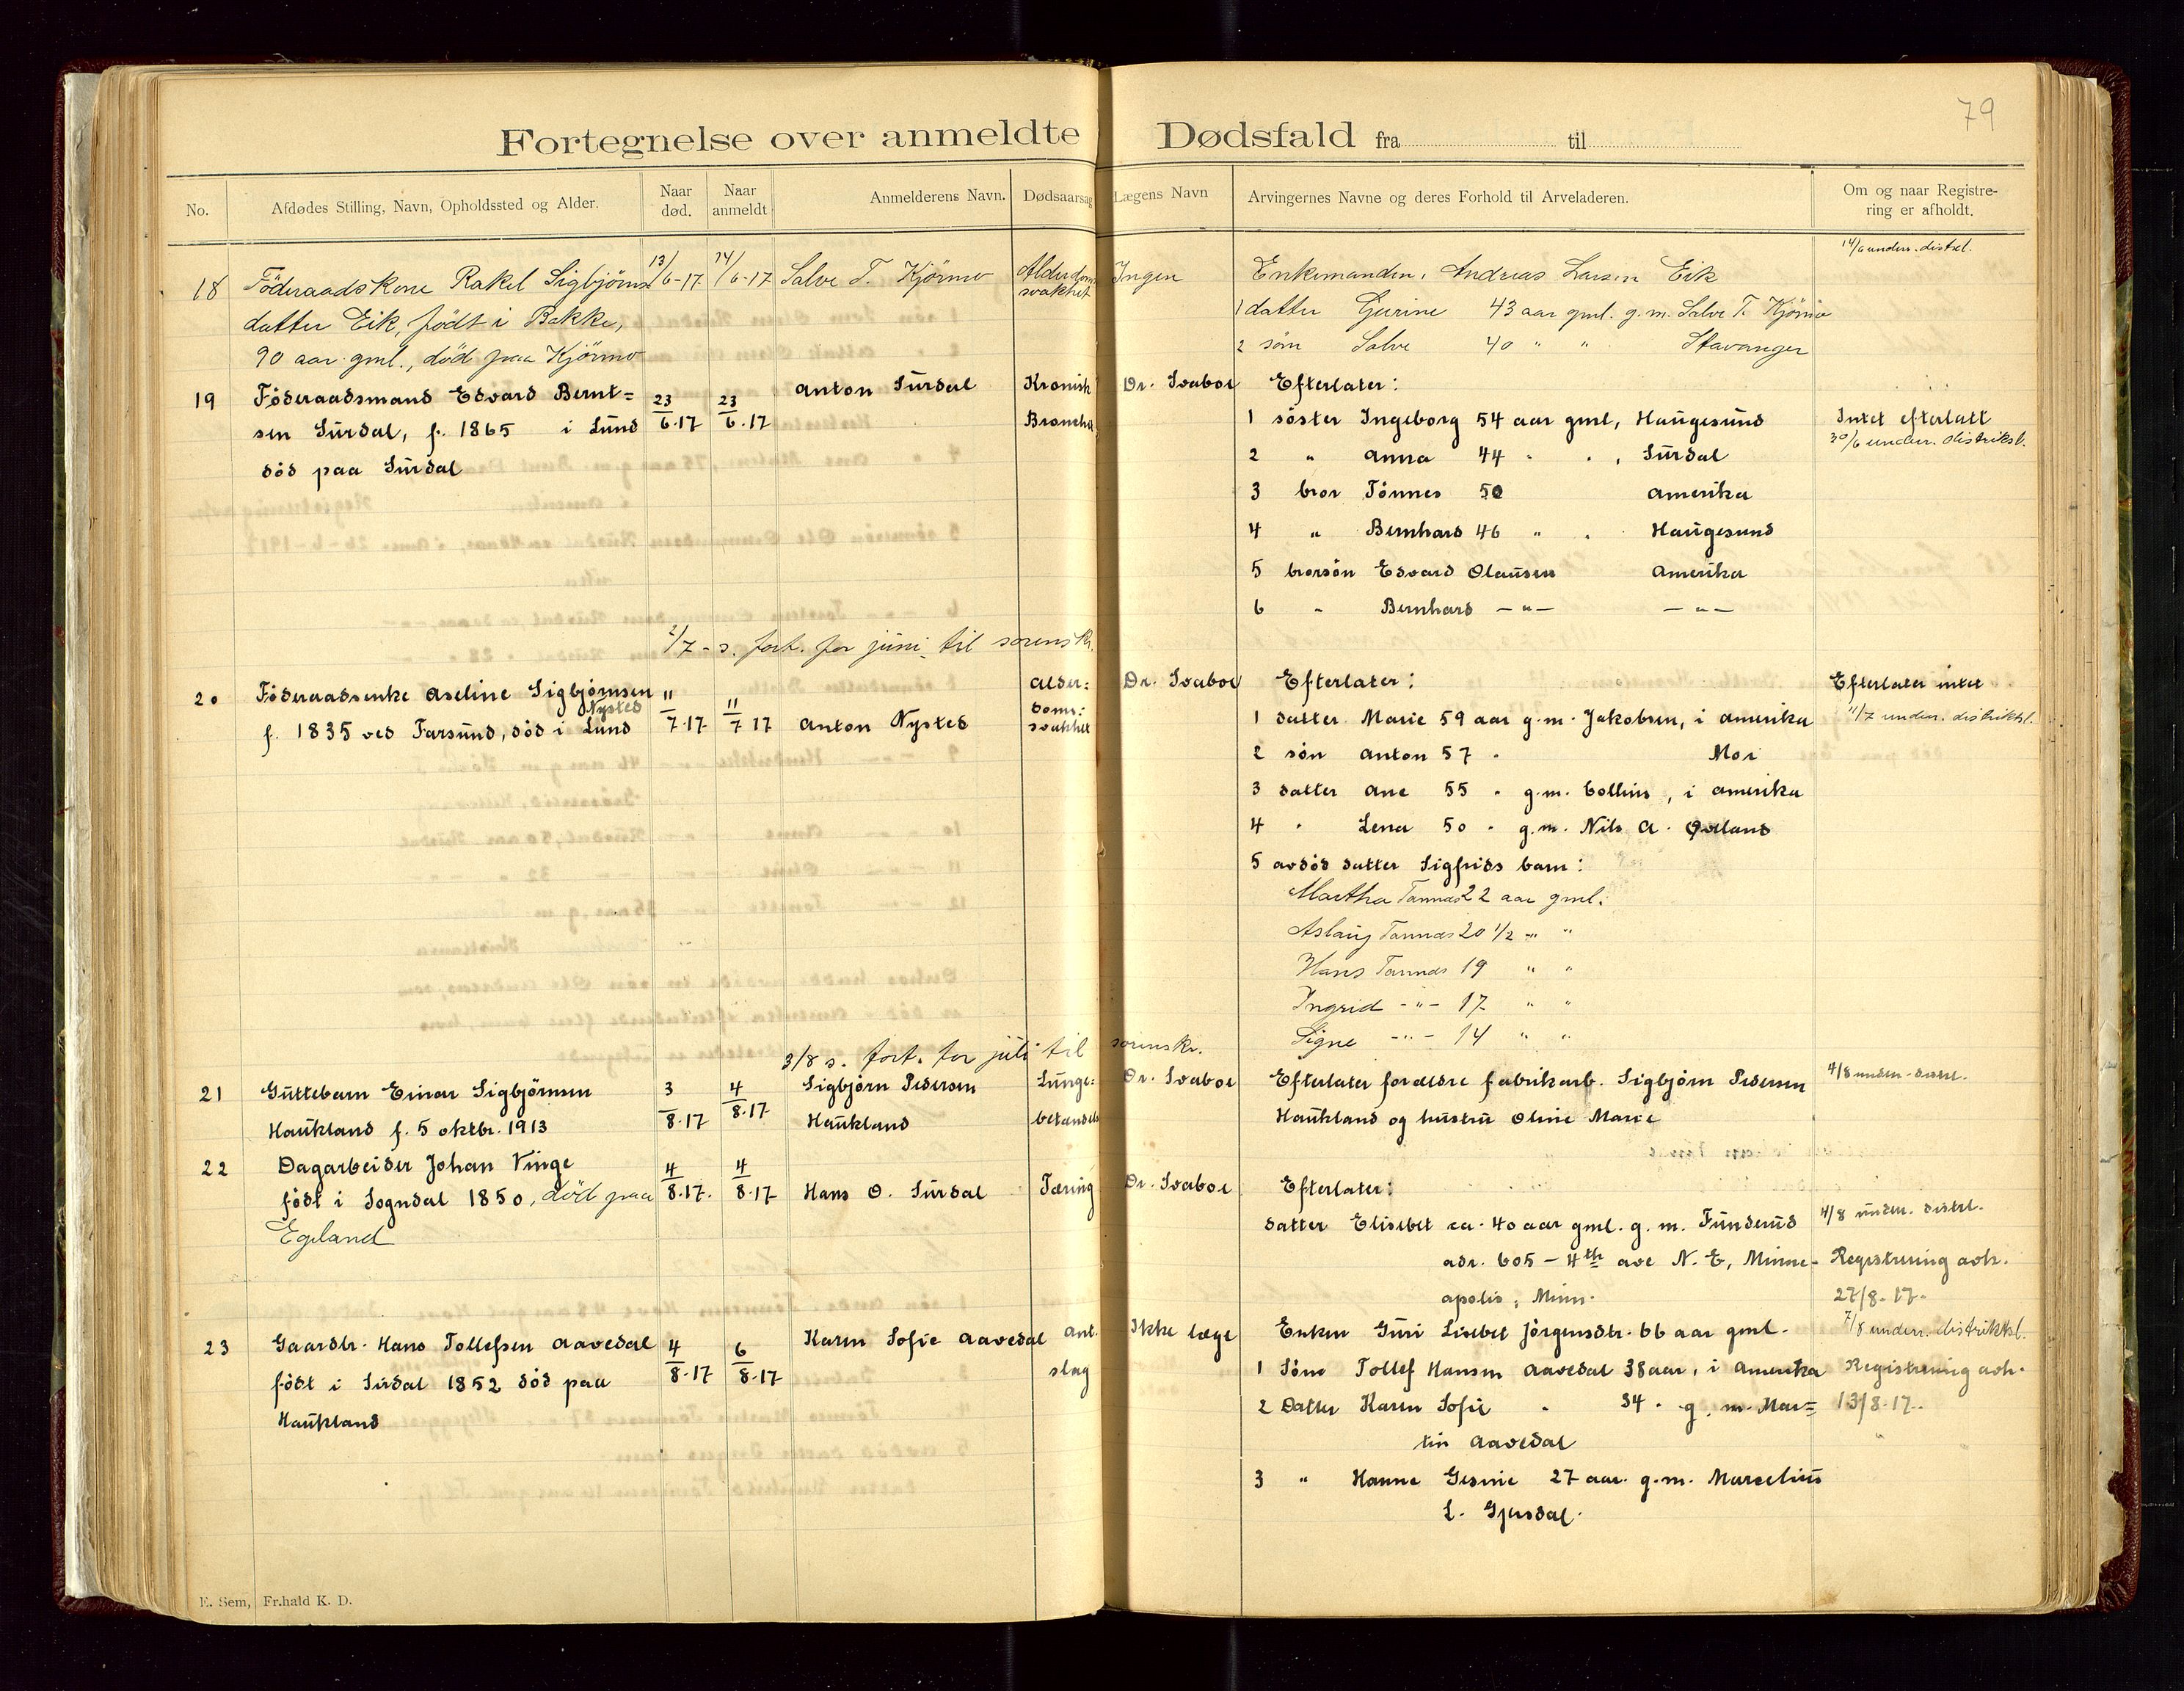 79
Fortegnelse over anmeldte Dødsfald fra til
No. Afdødes Stilling, Navn, Opholdssted og Alder. Naar død. Naar anmeldt Anmelderens Navn. Dødsaarsag Lægens Navn Arvingernes Navne og deres Forhold til Arveladeren. Om og naar Registrering er afholdt.
14/6 underr. distrl.
18 Föderaadskone Rakel Sigbjörns 13/6-17 14/6-17 Salve T. Kjörmo Alderdoms Ingen Enkemanden, Andreas Larsen Eik
datter Eik, født i Bakke, svakhet 1 datter Gurine 43 aar gml. g.m. Salve T. Kjörmo
90 aar gml., död paa Kjörmo 2 søn Salve 40 " " Stavanger
19 Föderaadsmand Edvard Bernt= 23/6.17 23/6.17 Anton Surdal Kronisk Dr. Svaboe Efterlater:
sen Surdal, f. 1865 i Lund Bronchit 1 söster Ingeborg 54 aar gml, Haugesund Intet efterlatt
död paa Surdal 2 " Anna 44 " " , Surdal 30/6 underr. distriksl.
3 bror Tönnes 50 Amerika
4 " Bernhard 46 " " Haugesund
5 brorsön Edvard Olausen Amerika
6 " Bernhard — " — — " —
2/7 - s. fort. for juni til sorenskr.
20 Föderaadsenke Aseline Sigbjörnsen 11/7.17 11/7 17 Anton Nysted Alder= Dr. Svaboe Efterlater: Efterlater intet
Nysted doms=
f. 1835 ved Farsund, död i Lund svakhet 1 datter Marie 59 aar g.m. Jakobsen, i Amerika 11/7 underr. distriktsl.
2 sön Anton 57 " Moi
3 datter Ane 55 " g.m. Collins, i Amerika
4 " Lena 50 " g.m. Nils A. Østland
5 avdöd datter Sigfrids barn:
Martha Tannas 22 aar gml.
Aslaug Tannas 20 1/2 " "
Hans Tannas 19 " "
Ingrid - " - 17 " "
Signe - " - 14 " "
3/8 s. fort. for juli til sorenskr.
21 Guttebarn Einar Sigbjörnsen 3/8.17 4/8.17 Sigbjörn Pedersen Lunge= Dr. Svaboe Efterlater foreldre fabrikarb. Sigbjörn Pedersen 4/8 underr. distrl.
Haukland f. 5 oktbr. 1913 Haukland betendels Haukland og hustru Oline Marie
22 Dagarbeider Johan Vinge 4/8.17. 4/8.17 Hans O. Surdal Tæring Dr. Svaboe Efterlater:
födt i Sogndal 1850, död paa datter Elisebet ca. 40 aar gml. g. m. Funderud 4/8 underr. distrl.
Egeland adr. 605 - 4th ave N. E, Minne- Registrering avh.
apolis, Minn. 27/8.17.
23 Gaardbr. Hans Tollefsen Aavedal 4/8.17 6/8.17 Karen Sofie Aavedal Ant. Ikke læge Enken Guri Lisebet Jörgensdtr. 66 aar gml. 7/8 underr. distriktsl.
födt i Sirdal 1852 död paa slag 1 Söne Tollef Hansen Aavedal 38 aar, i Amerika Registrering avh.
Haukland 2 Datter Karen Sofie " 34 " g. m. Mar= 13/8.17.
tin Aavedal
3 " Hanne Gesine 27 aar. g.m. Marcelius
L. Gjersdal.
E. Sem, Fr.hald K. D.